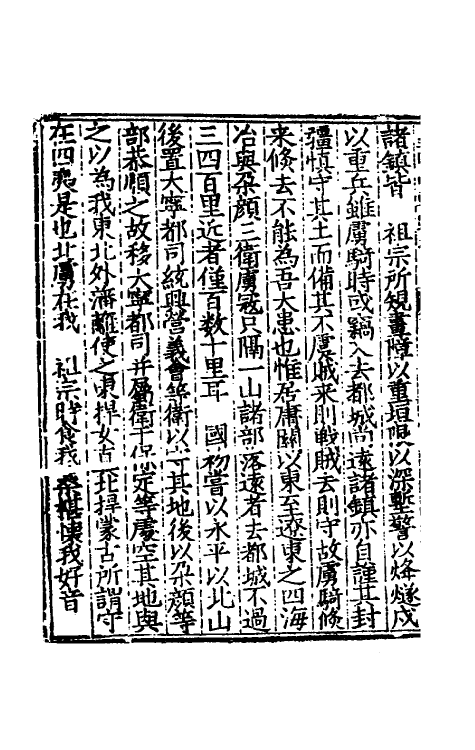 諸鎮皆　祖宗所規畫障以重垣限以深塹警以烽燧戍
以重兵雖虜騎時或竊入去都城尚遠諸鎮亦自謹其封
疆慎守其土而備其不虞賊來則戰賊去則守故虜騎倏
來倏去不能為吾大患也惟居庸關以東至遼東之四海
冶與朶顏三衛虜寇只隔一山諸部落遠者去都城不過
三四百里近者僅百数十里耳　國初嘗以永平以北山
後置大寧都司統興營義會等衛以守其地後以朶顏等
部恭順之故移大寧都司并屬衛于保定等處空其地與
之以為我東北外藩籬使之東捍女直北捍蒙古所謂守
在四夷是也北虜在我　祖宗時食我桑椹懷我好音